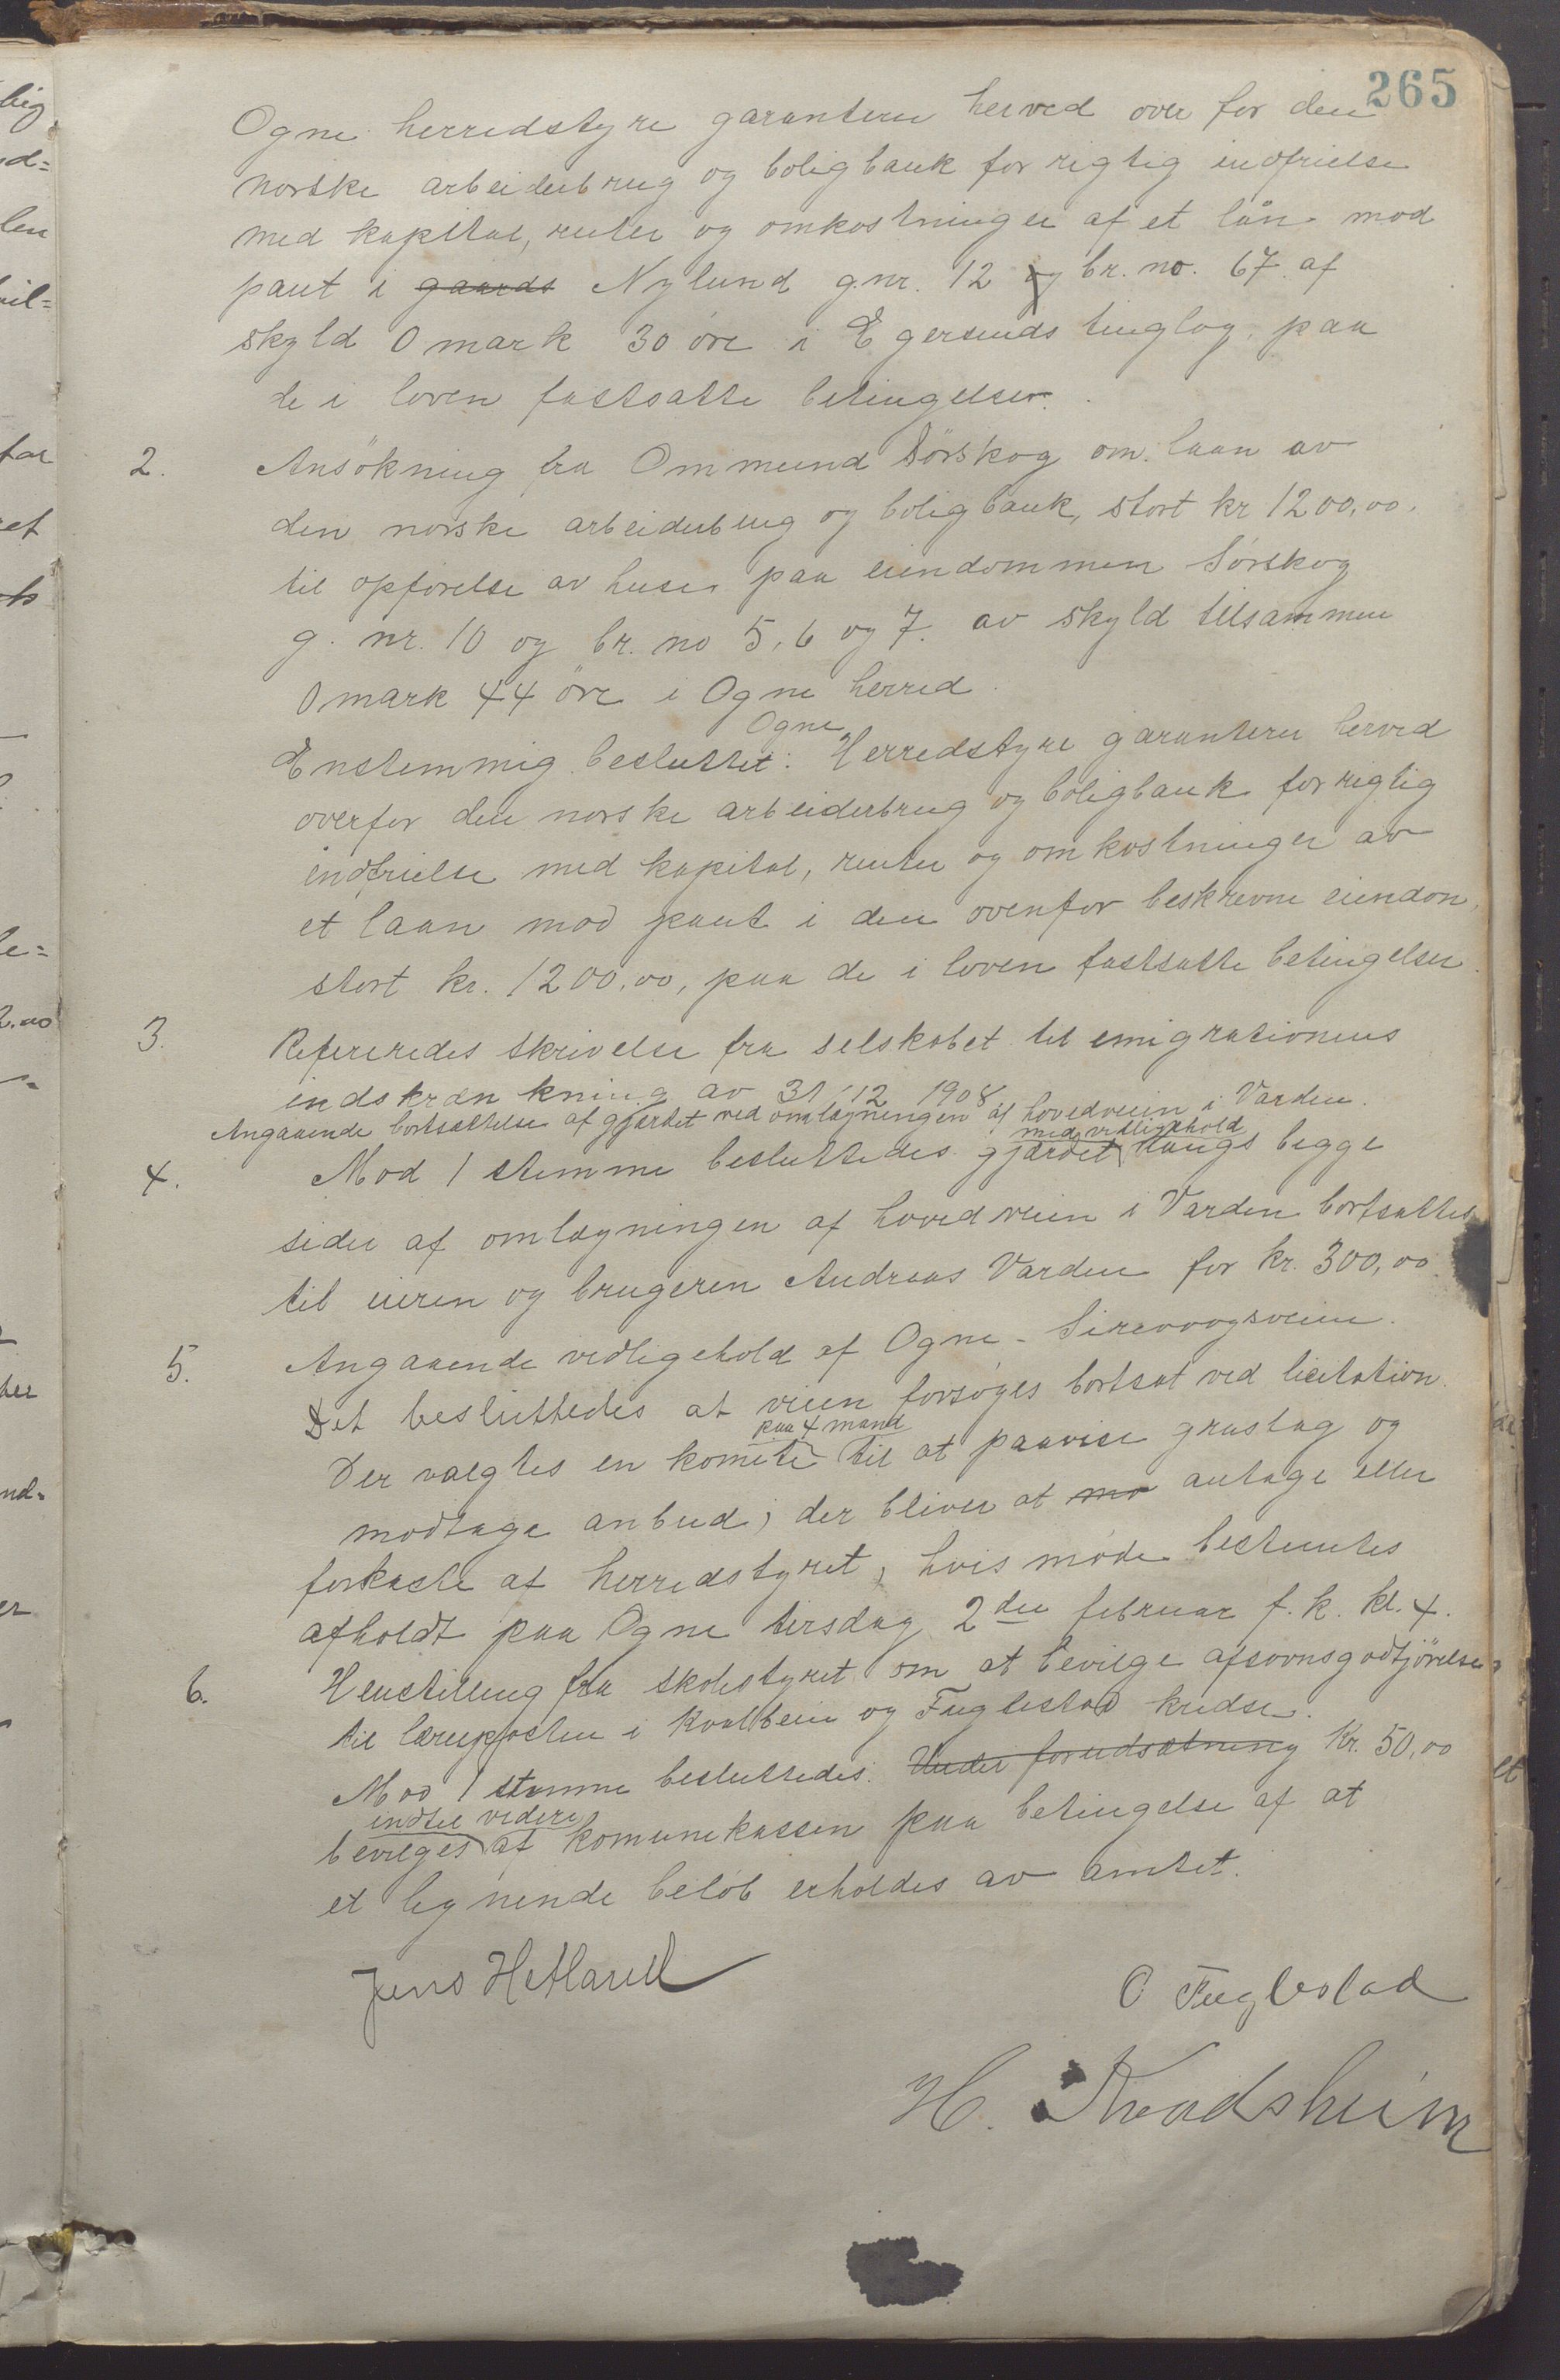 265
Ogne herredstyre garanterer herved over for den
norske arbeiderbrug og boligbank for rigtig indfrielse
med kapital, renter og omkostninger af et lån mod
pant i gaards Nylund g.nr. 12 og br. no. 67 af
skyld 0 mark 30 öre i Egersunds tinglag, paa
de i loven fastsatte betingelser.
2. Ansökning fra Ommund Sörskog om laan av
den norske arbeiderbrug og boligbank, stort kr 1200,00.
til opförelse av huse paa eiendommen Sörskog
g. nr. 10 og br. no 5, 6 og 7. av skyld tilsammen
0 mark 44 öre i Ogne herred.
Ogne
Enstemmig besluttet: Herredstyre garanterer herved
overfor den norske arbeiderbrug og boligbank for rigtig
indfrielse med kapital, renter og omkostninger av
et laan mod pant i den ovenfor beskrevne eiendom,
stort kr. 1200,00, paa de i loven fastsatte betingelser.
3. Refereredes skrivelse fra selskabet til emigrationens
indskrænkning av 31/12 1908
Angaaende bortsættelse af gjærdet ved omlægningen af hovedveien i Varden.
med vedligehold
4. Mod 1 stemme besluttedes gjærdet langs begge
sider af omlægningen af hovedveien i Varden bortsattes
til eieren og brugeren Andreas Varden for kr. 300,00.
5. Angaaende vedligehold af Ogne - Sirevaagsveien.
Det besluttedes at veien forsöges bortsat ved licitation.
paa 4 mand
Der valgtes en komite til at paavise grustag og
modtage anbud; der bliver at mo antage eller
forkaste af herredstyret, hvis möde bestemtes
afholdt paa Ogne tirsdag 2den februar f. k. kl. 4.
6. Henstilling fra skolestyret om at bevilge afsavnsgodtjörelse
til lærerposten i Kvalbein og Fuglestad kredse.
Mod 1 stemme besluttedes: Under forudsætning Kr. 50,00
indtil videre
bevilges af komunekassen paa betingelse af at
et lignende belöb erholdes av amtet.
Jens Hetland
O Fuglestad
H. Kvadsheim